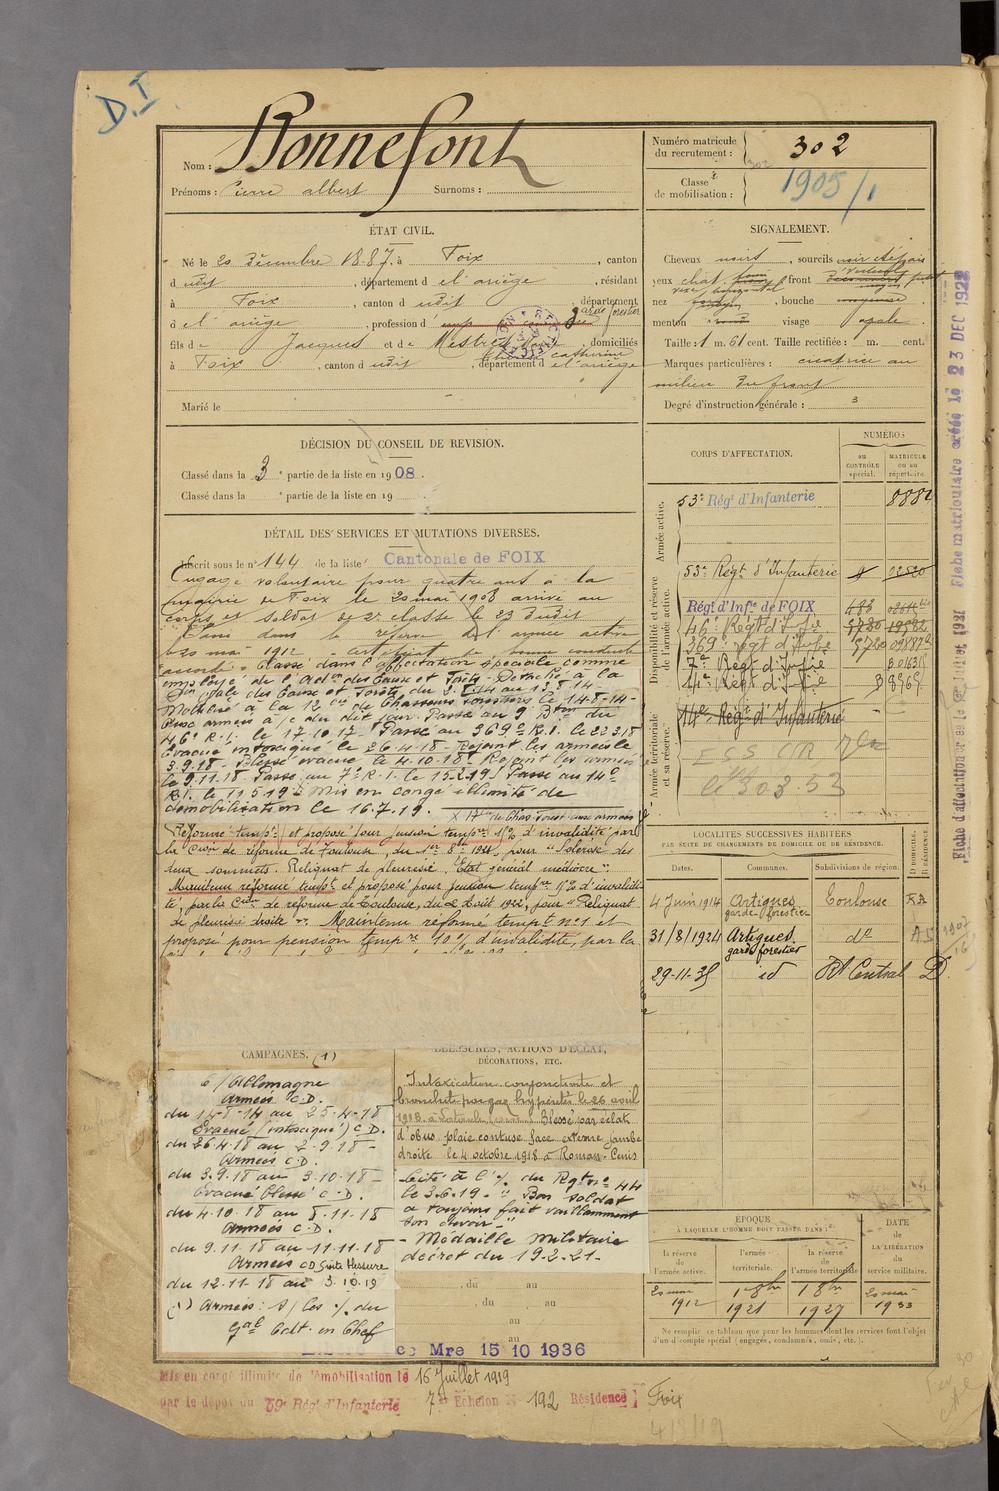 D.I
Nom : Bonnefont
Prénoms : Pierre albert Surnoms :
Numéro matricule
du recrutement : 302
Classe
de mobilisation : 1905/1
ÉTAT CIVIL.
Né le 20 Décembre 1887, à Foix, canton
d udit, département d el'ariège, résidant
à Foix, canton d udit, département
d el'ariège, profession d garde forestier
fils de Jacques et de Mestre
Catherine domiciliés
à Foix, canton d udit, département d el'ariège
Marié le
SIGNALEMENT.
Cheveux noirs, sourcils
yeux front
nez, bouche moyenne
menton rond visage ovale
Taille : 1 m. 61 cent. Taille rectifiée : m. cent.
Marques particulières : cicatrice au
milieu du front
Degré d'instruction générale : 3
DÉCISION DU CONSEIL DE REVISION.
Classé dans la 3e partie de la liste en 1908.
Classé dans la e partie de la liste en 19
DÉTAIL DES SERVICES ET MUTATIONS DIVERSES.
Inscrit sous le n° 144 de la liste Cantonale de FOIX
Engagé volontaire pour quatre ans à la
mairie de Foix le 20 mai 1908 arrivé au
corps et soldat de 2e classe le 23 dudit
Passé dans la réserve de l'armée active
le 20 mai 1912 - certificat de bonne conduite
accordé - Classé dans l'affectation spéciale comme
employé de l'Adon des Eaux et Forêts - Détaché à la
des Eaux et Forêts du 2-8-14 au 13-8-14
Mobilisé à la 12 Cie de Chasseurs forestiers le 14-8-14-
aux armées à/c du dit jour. Passé au 9 Bton du
46e R.I. le 17.10.17. Passé au 369e R.I. le 22.3.18
Evacué intoxiqué le 26-4-18 - Rejoint les armées le
3.9.18 - Blessé évacué le 4.10.18 - Rejoint les armées
le 9.11.18 Passé au 7e R.I. le 15.2.19. Passé au 14e
R.I. le 11.5.19. Mis en congé illimité de
démobilisation le 16.7.19.
Réformé tempre et proposé pour pension tempre 15% d'invalidité par
la Con de réforme de Toulouse, du 1er 8bre 1921, pour "Sclérose des
deux sommets. Reliquat de pleurésie. Etat général médiocre".
Maintenu réformé tempre et proposé pour pension tempre 10% d'invalidi-
té, par la Con de réforme de Toulouse, du 2 Août 1922, pour "Reliquat
de pleurésie droite". Maintenu réformé tempre n°1 et
proposé pour pension tempre 10% d'invalidité, par la
CORPS D'AFFECTATION.
NUMÉROS
AU CONTRÔLE spécial.
MATRICULE ou au répertoire.
Armée active.
53e Régt d'Infanterie 8882
Disponibilité et réserve
de l'armée active.
53e Régt d'Infanterie
Régt d'Infie de FOIX 483
46e Régt d'Infie 19582
369e régt d'Infie 5720
7e Régt d'Infie
14e Régt d'Infie
Armée territoriale
et sa réserve.
14e Régt d'Infanterie
LOCALITÉS SUCCESSIVES HABITÉES
PAR SUITE DE CHANGEMENTS DE DOMICILE OU DE RÉSIDENCE.
Dates. Communes. Subdivisions de région. D DOMICILE. R RÉSIDENCE.
4 Juin 1914 Artigues Toulouse RA
garde-forestier
31/8/1924 Artigues do
garde forestier
29-11-35 id Rt Central D
CAMPAGNES. (1)
C/Allemagne
Armées C.D.
du 14-8-14 au 25-4-18
Evacué (intoxiqué) C.D.
du 26-4-18 au 2-9-18-
Armées C.D.
du 3.9.18 au 3.10.18-
Evacué blessé C.D.
du 4-10-18 au 8-11-18
Armées C.D.
du 9.11.18 au 11-11-18
Armées CD Suite blessure
du 12-11-18 au 3.10.19
(1) Armées : S/ les % du
Gal Cdt. en Chef
BLESSURES, ACTIONS D'ÉCLAT,
DÉCORATIONS, ETC.
Intoxication conjonctivite et
bronchite par gaz hypérités le 26 avril
1918. Blessé par éclat
d'obus plaie contuse face externe jambe
droite le 4 octobre 1918 à
Cité à l'% du Rgt n° 44
le 3.6.19- "Bon soldat
a toujours fait vaillamment
son devoir-"
- Médaille militaire
décret du 19-2-21-
du au
du au
au
au
ÉPOQUE
À LAQUELLE L'HOMME DOIT PASSER DANS :
la réserve de l'armée active.
l'armée territoriale.
la réserve de l'armée territoriale
DATE DE LA LIBÉRATION du service militaire.
20 mai 1912
1er 8bre 1921
1er 8bre 1927
20 mai 1933
Ne remplir ce tableau que pour les hommes dont les services font l'objet
d'un décompte spécial (engagés, condamnés, omis, etc.).
Mre 15 10 1936
Mis en congé illimité de démobilisation le 16 Juillet 1919
par le dépôt du 59e Régt d'Infanterie 7e Échelon N° 192 Résidence Foix
Fiche matriculaire créée le 23 DEC 1922